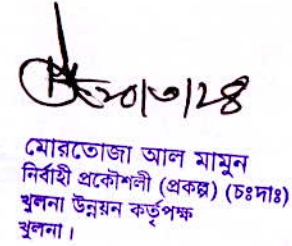 ২০/৩/২৪
মোরতোজা আল মামুন
নির্বাহী প্রকৌশলী (প্রকল্প) (চঃদাঃ)
খুলনা উন্নয়ন কর্তৃপক্ষ
খুলনা।